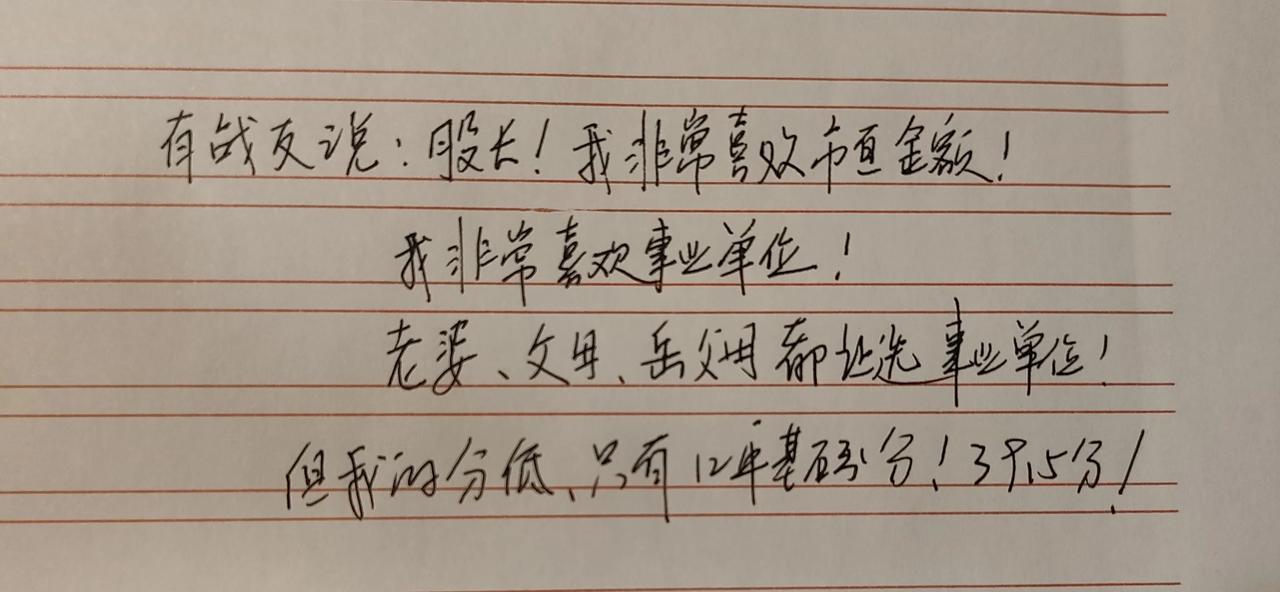 有战友说：股长！我非常喜欢市直金额！
我非常喜欢事业单位！
老婆、父母、岳父母都让选事业单位！
但我的分低、只有12年基础分！39.5分！